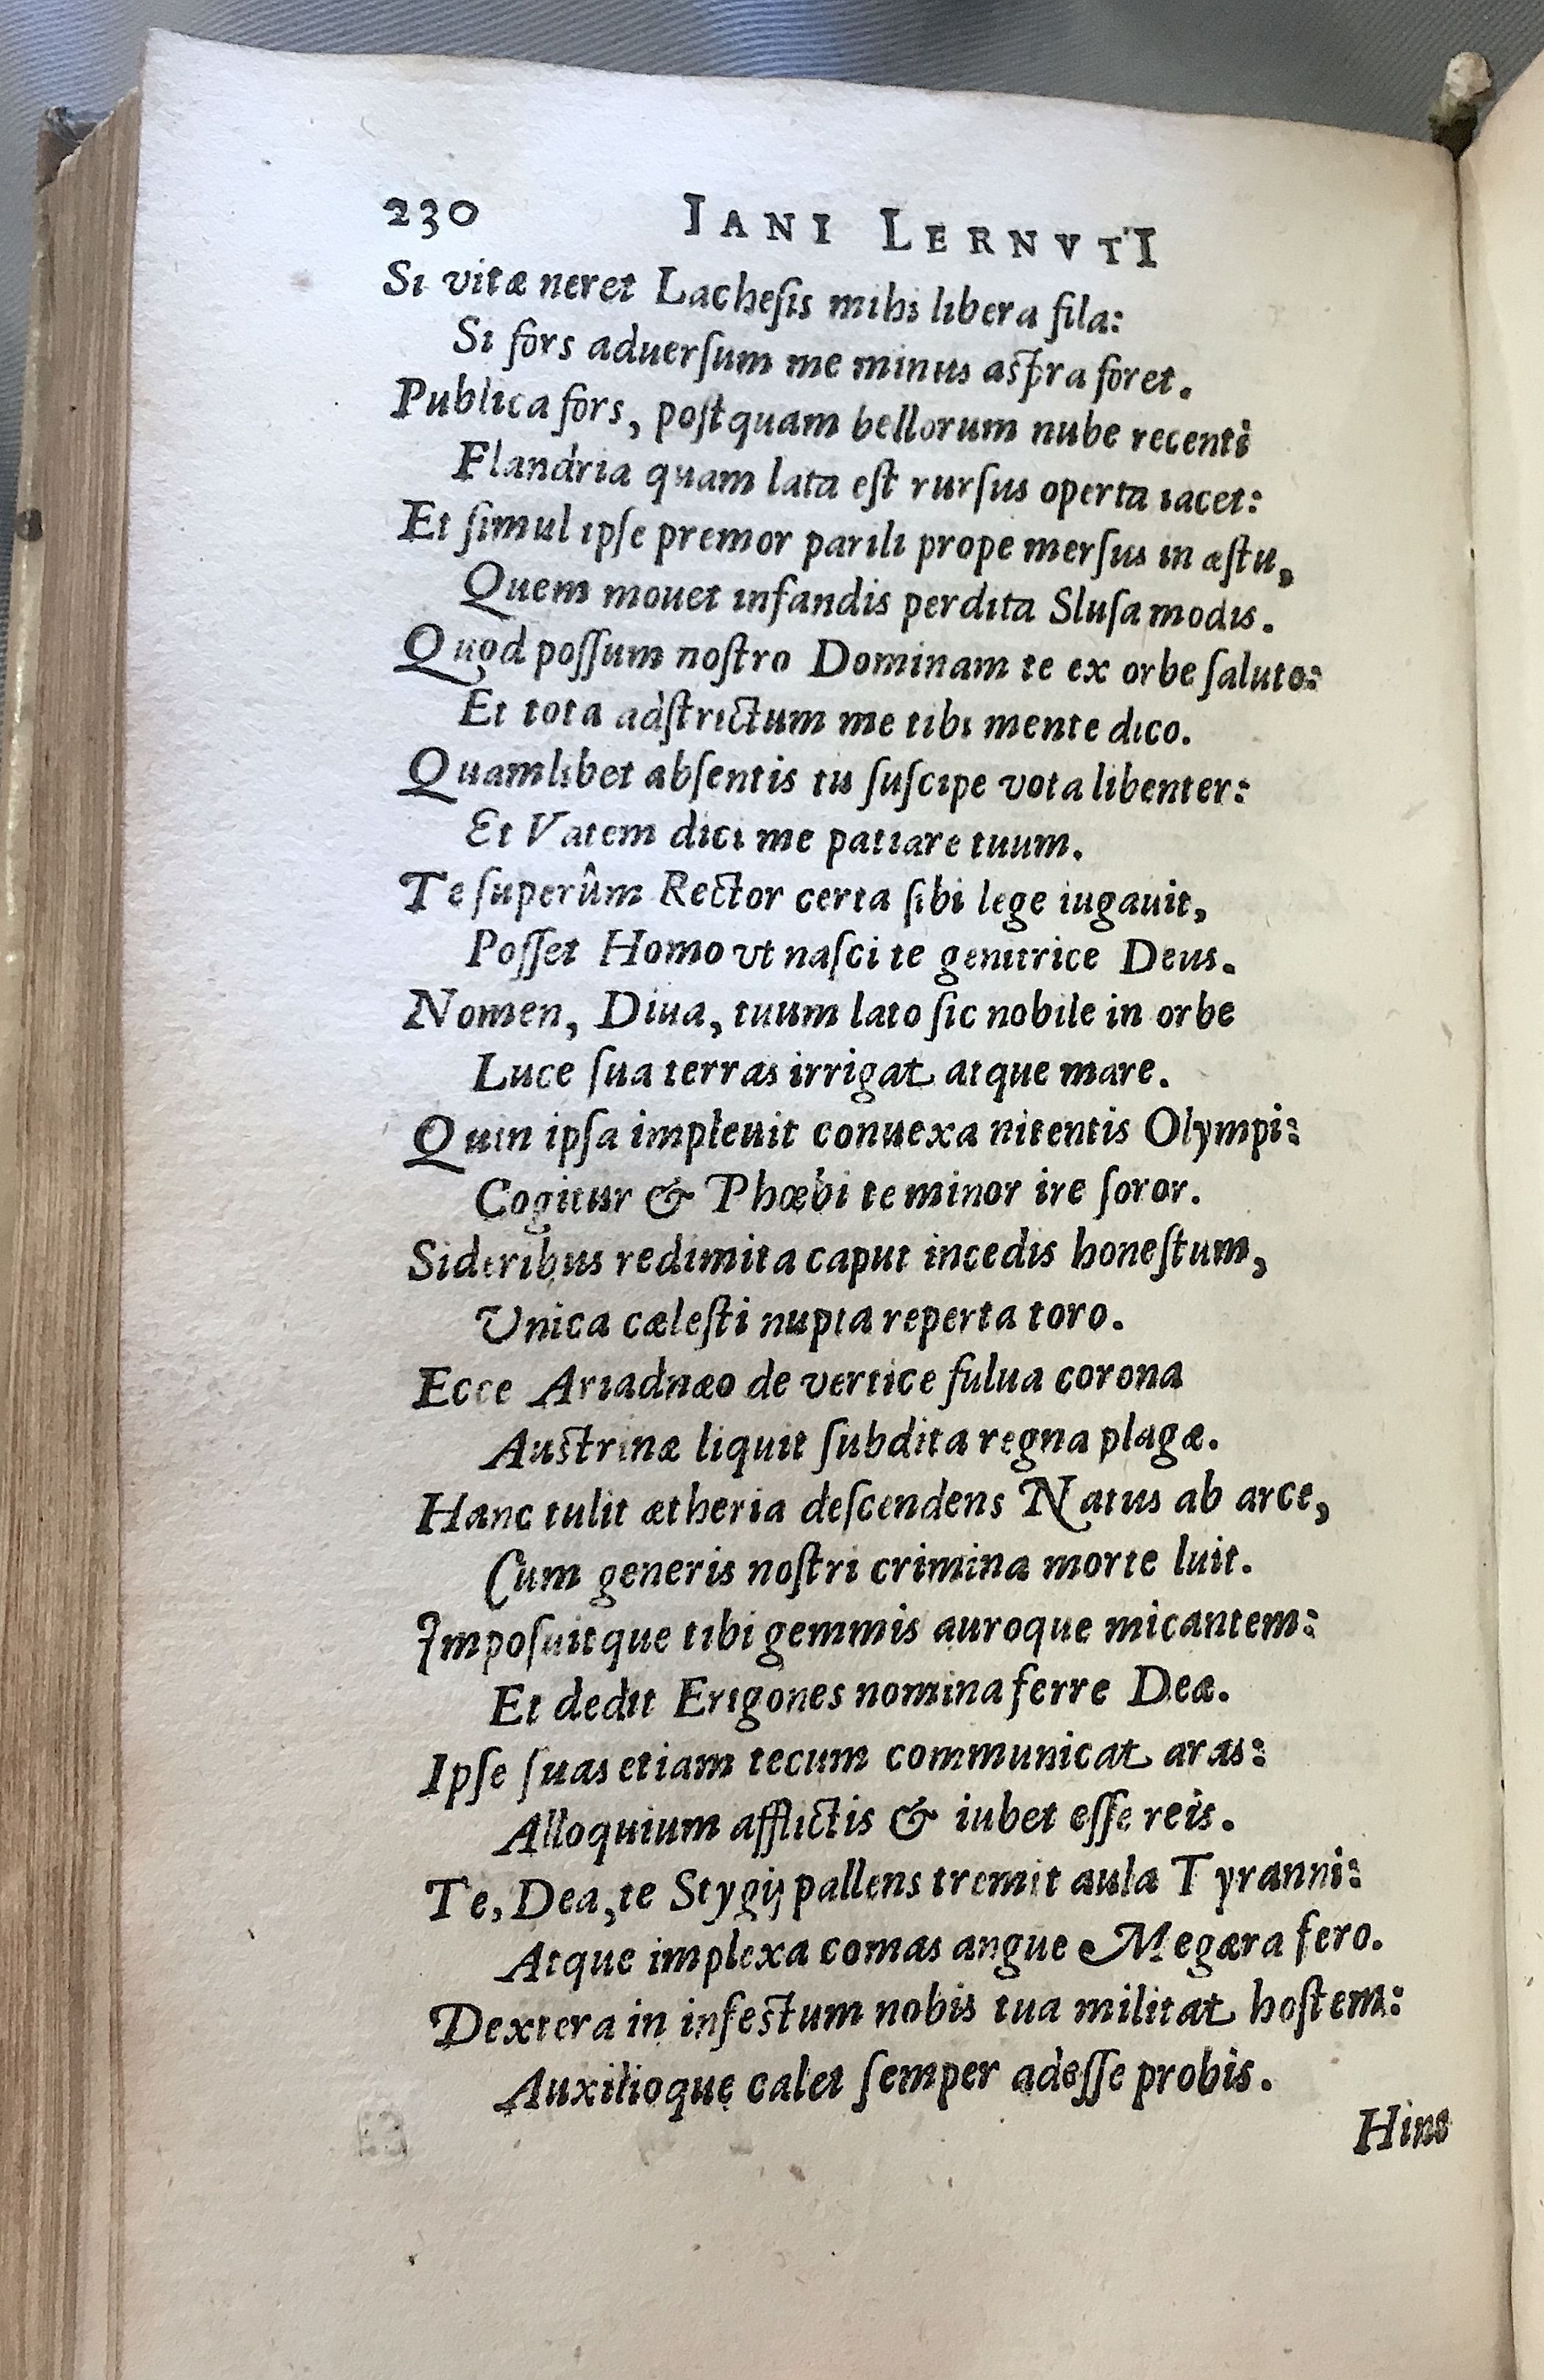 230 IANI LERNVTI
Si vitæ neret Lacheſis mihi libera fila:
Si fors aduerſum me minus aſpra foret.
Publica fors, poſtquam bellorum nube recenti
Flandria quam lata eſt rurſus operta iacet:
Et ſimul ipſe premor parili prope merſus in æſtu,
Quem mouet infandis perdita Sluſa modis.
Quod poſſum noſtro Dominam te ex orbe ſaluto:
Et tota adſtrictum me tibi mente dico.
Quamlibet abſentis tu ſuſcipe vota libenter:
Et Vatem dici me patiare tuum.
Te ſuperûm Rector certa ſibi lege iugauit,
Poſſet Homo vt naſci te genitrice Deus.
Nomen, Diua, tuum lato ſic nobile in orbe
Luce ſua terras irrigat atque mare.
Quin ipſa impleuit conuexa nitentis Olympi:
Cogitur & Phœbi te minor ire ſoror.
Sideribus redimita caput incedis honeſtum,
Vnica cæleſti nupta reperta toro.
Ecce Ariadnæo de vertice fulua corona
Auſtrinæ liquit ſubdita regna plagæ.
Hanc tulit ætheria deſcendens Natus ab arce,
Cum generis noſtri crimina morte luit.
Impoſuitque tibi gemmis auroque micantem:
Et dedit Erigones nomina ferre Deæ.
Ipſe ſuas etiam tecum communicat aras:
Alloquium afflictis & iubet eſſe reis.
Te, Dea, te Stygij pallens tremit aula Tyranni:
Atque implexa comas angue Megæra fero.
Dextera in infeſtum nobis tua militat hoſtem:
Auxilioque calet ſemper adeſſe probis.
Hinc